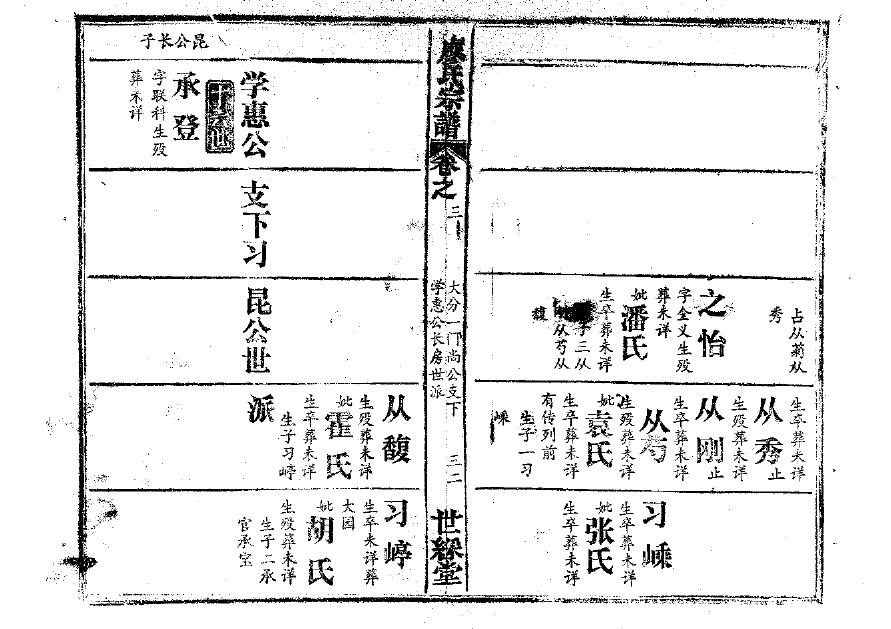 占从菊从
秀
之怡
字金义生殁
葬未详
妣
潘氏
生卒葬未详
子三从
从芍从
馥
生卒葬未详
从秀
止
生殁葬未详
从刚
止
生卒葬未详
从芍
生殁葬未详
妣
袁氏
生卒葬未详
有传列前
生子一习
嵊
习嵊
生卒葬未详
妣
张氏
生卒葬未详
廖氏宗譜
卷之
三
大分一门尚公支下
学惠公长房世派
三二
世綵堂
学惠公
支下习
昆公世
派
十六世
承登
字联科生殁
葬未详
昆公长子
从馥
生殁葬未详
妣
霍氏
生卒葬未详
生子习崞
习崞
生卒未详葬
大园
妣
胡氏
生殁葬未详
生子二承
官承宝